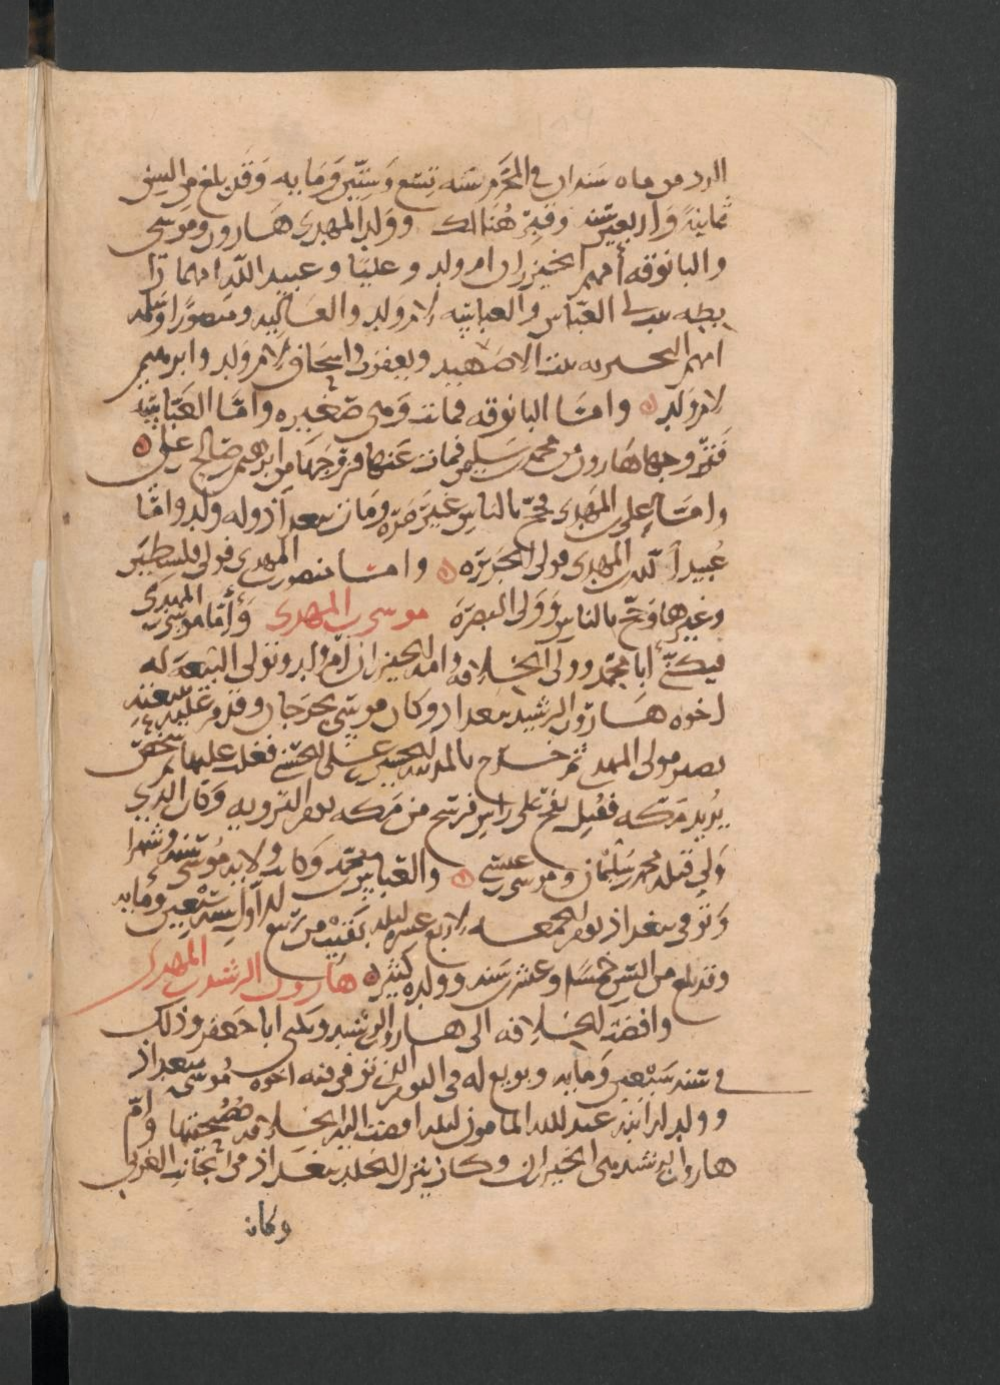 الرد من ماه سندان في المحرم سنه تسع وستين ومايه وقد بلغ من السن
ثمانية واربعين سنه وقبر هنالك وولد المهدي هارون وموسى
والبانوقه أمهم الخيزران ام ولد وعليا وعبيد الله امهما
ريطه بنت ابي العباس والعباسيه لام ولد والعاليه ومنصورا وسليمه
امهم البحتريه بنت الاصبهبد ويعقوب واسحاق لام ولد وابرهيم
لام ولد ٥ وامّا البانوقه فماتت وهي صغيره وامّا العبّاسيّه
فتزوجها هارون من محمد بن سليمن فمات عنها فزوجها من ابرهيم بن صالح بن علي ٥
وامّا علي بن المهدي فحج بالناس غير مره ومات ببغداذ وله ولد وامّا
عُبيد الله بن المهدي فولى الجزيره ٥ وامّا منصور بن المهدي فولى فلسطين
وغيرها وحج بالناس وولى البصرة موسى بن المهدي وأمّا موسى بن المهدي
فيكنّى أبا محمد وولى الخلافه وامه الخيزران امّ ولد وتولى البيعة له
اخوه هارون الرشيد ببغداد وكان موسى بجرجان وقدم عليه ببغداد
نصير مولى المهدي ثم خرج بالمدينه الحسين بن علي الحسني فغلب عليها ثم شخص
يريد مكه فقتل بفخ على راس فرسخ من مكه يوم الترويه وكان الذي
ولي قتله محمد بن سليمان وموسى بن عيسى ٥ والعبّاس بن محمد وكانت ولايه موسى سنه وشهرا
وتوفى ببغداذ يوم الجمعه لاربع عشره ليله بقيت من ربيع الاول سنه سبعين ومايه
وقد بلغ من السن خمسا وعشرين سنه وولده كثير ٥ هارون الرشيد بن المهدي
وافضت الخلافه الى هارون الرشيد ويكنى ابا جعفر وذلك
في سنه سبعين ومايه وبويع له في اليوم الذي توفى فيه اخوه موسى ببغداذ
وولد له ابنه عبد الله المامون ليله افضت اليه الخلافه صُبيحتها وامّ
هارون الرشيد هي الخيزران وكان ينزل الخلد ببغداذ من الجانب الغربي
وكان